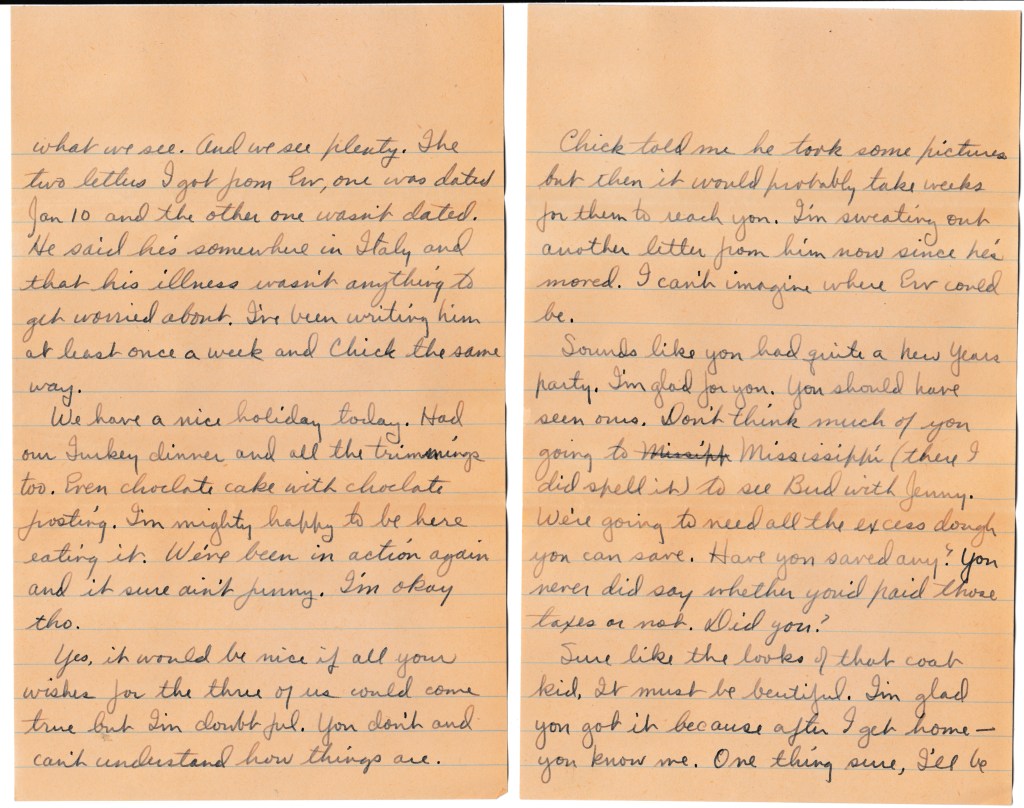 what we see. And we see plenty. The
two letters I got from Erv, one was dated
Jan 10 and the other one wasn't dated.
He said he's somewhere in Italy and
that his illness wasn't anything to
get worried about. I've been writing him
at least once a week and Chick the same
way.
We have a nice holiday today. Had
our Turkey dinner and all the trimmings
too. Even choclate cake with choclate
frosting. I'm mighty happy to be here
eating it. We've been in action again
and it sure ain't funny. I'm okay
tho.
Yes, it would be nice if all your
wishes for the three of us could come
true but I'm doubtful. You don't and
can't understand how things are.
Chick told me he took some pictures
but then it would probably take weeks
for them to reach you. I'm sweating out
another letter from him now since he's
moved. I can't imagine where Erv could
be.
Sounds like you had quite a New Years
party. I'm glad for you. You should have
seen ours. Don't think much of you
going to Missipp Mississippi (there I
did spell it) to see Bud with Jenny.
We're going to need all the excess dough
you can save. Have you saved any? You
never did say whether you'd paid those
taxes or not. Did you?
Sure like the looks of that coat
kid, It must be beutiful. I'm glad
you got it because after I get home—
you know me. One thing sure, I'll be